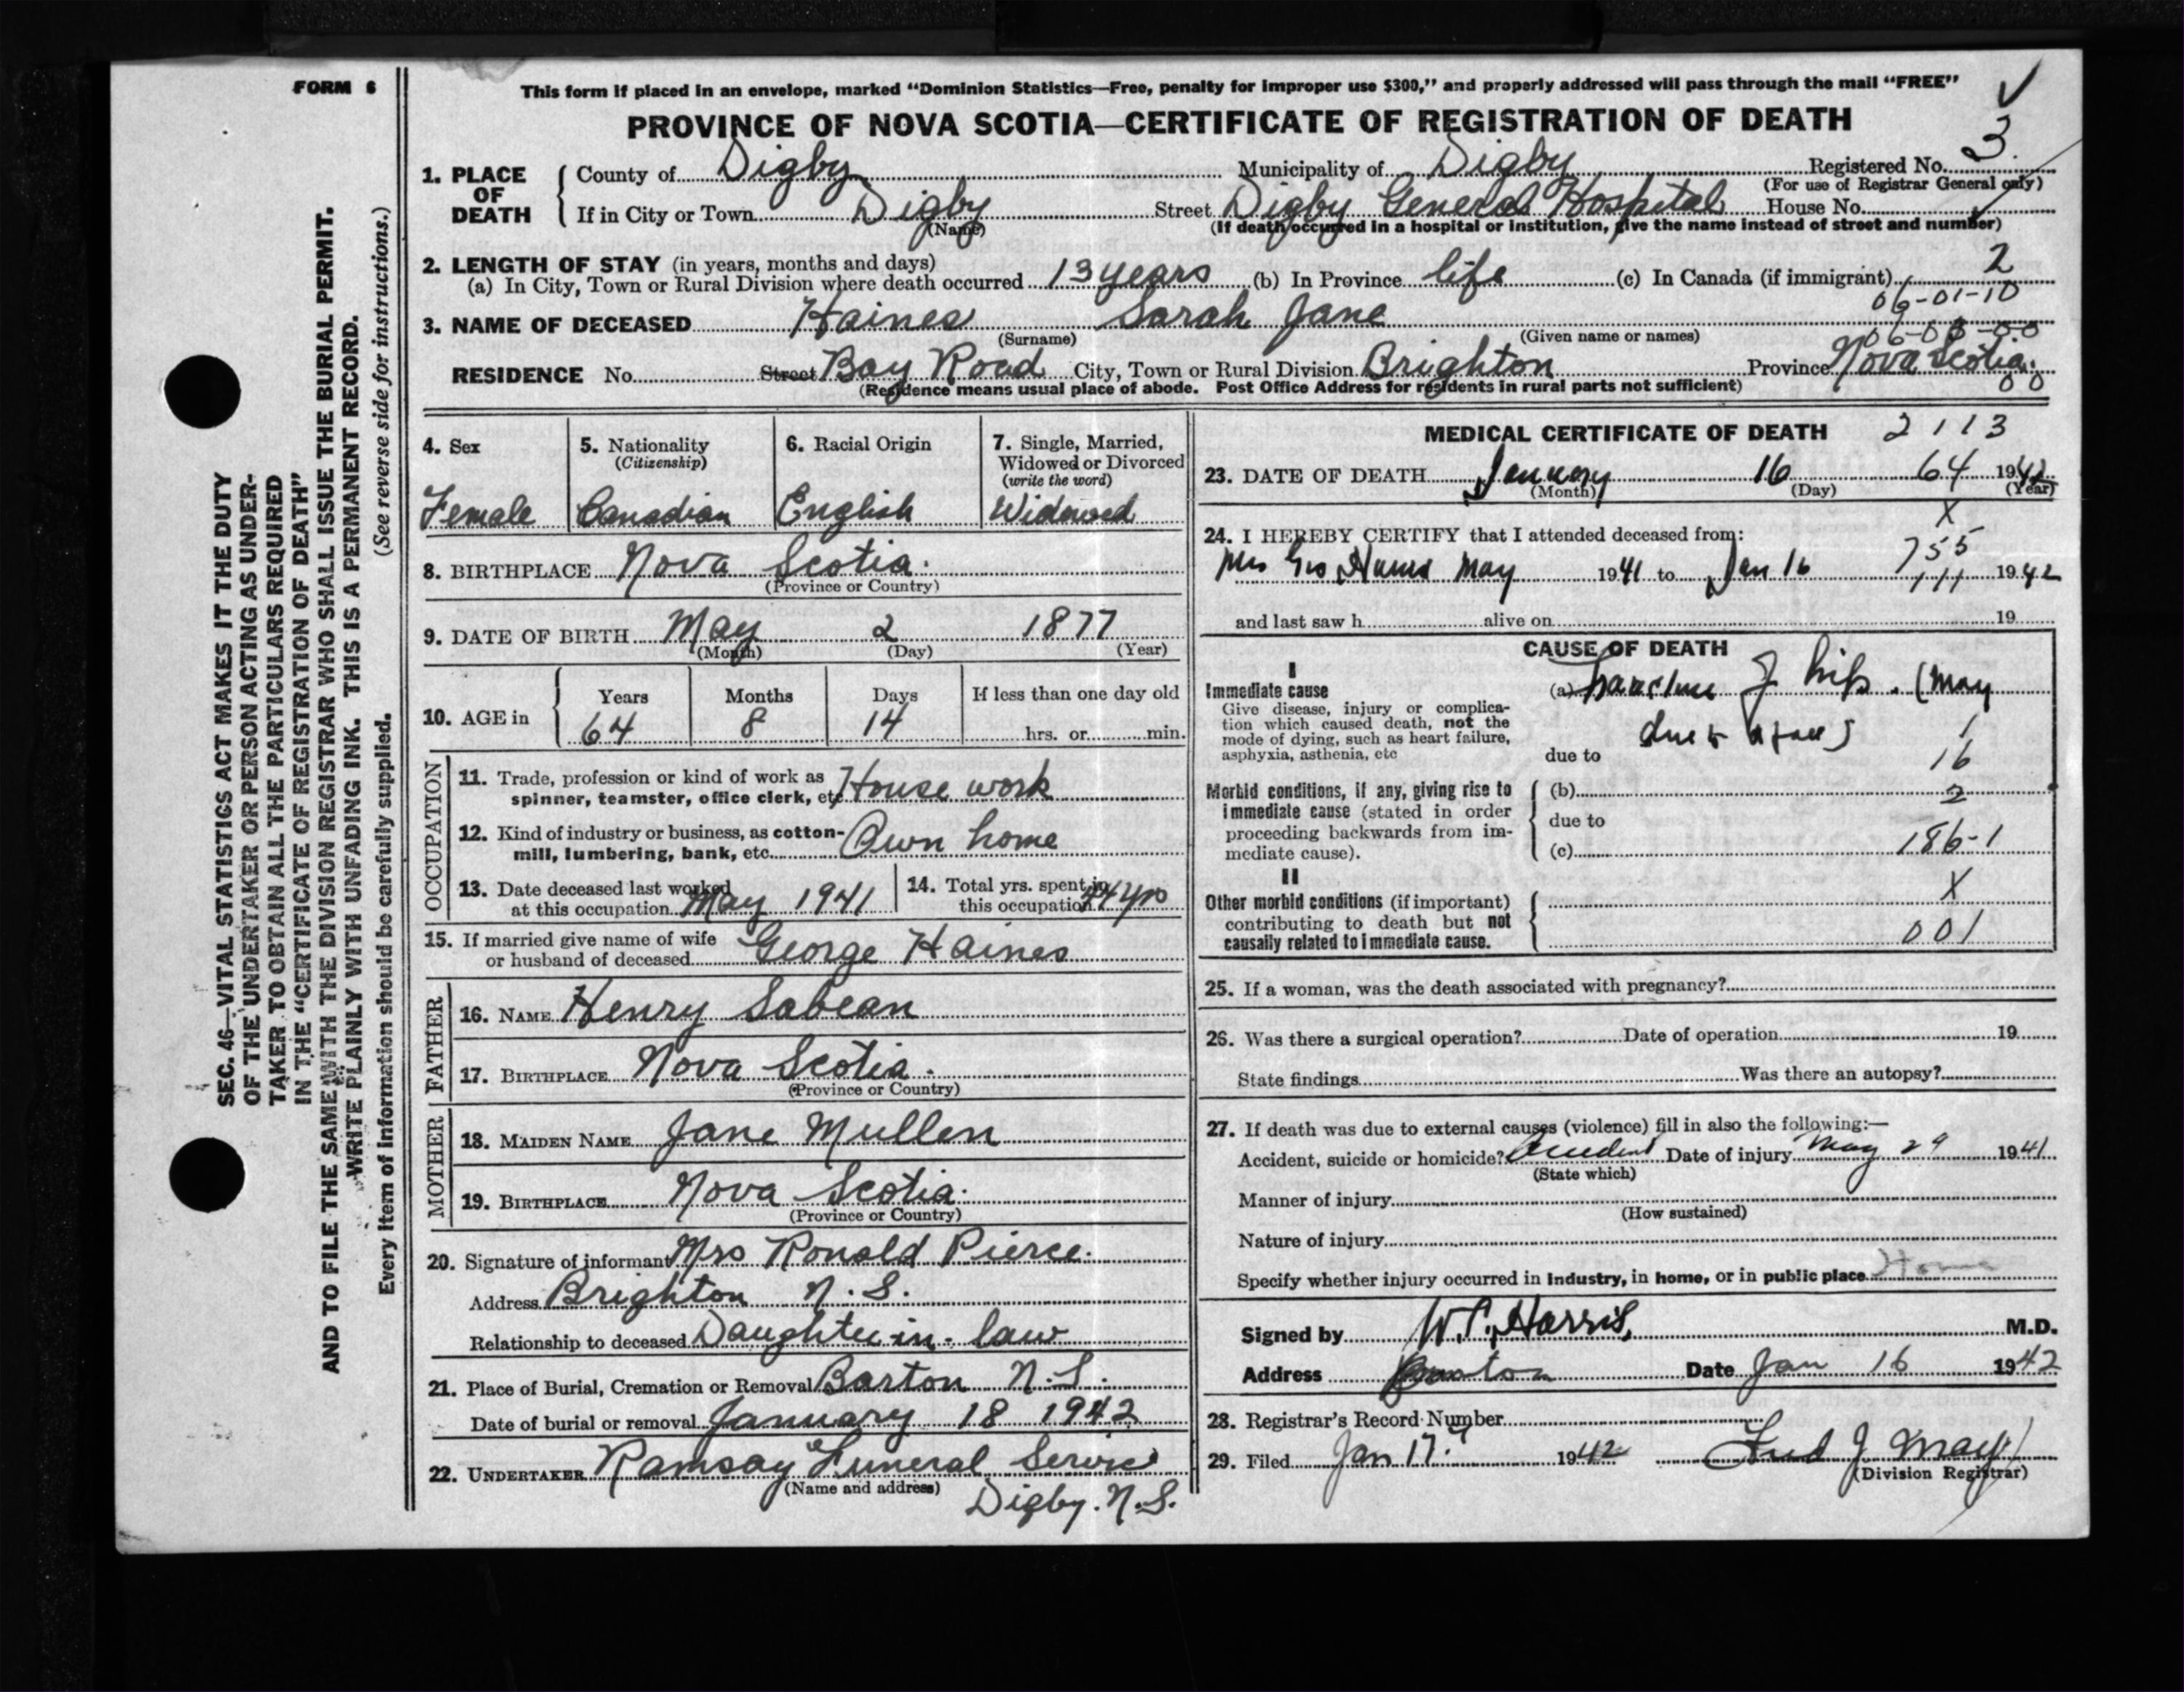 FORM 6
This form if placed in an envelope, marked "Dominion Statistics—Free, penalty for improper use $300," and properly addressed will pass through the mail "FREE"
PROVINCE OF NOVA SCOTIA—CERTIFICATE OF REGISTRATION OF DEATH
SEC. 46—VITAL STATISTICS ACT MAKES IT THE DUTY
OF THE UNDERTAKER OR PERSON ACTING AS UNDER-
TAKER TO OBTAIN ALL THE PARTICULARS REQUIRED
IN THE "CERTIFICATE OF REGISTRATION OF DEATH"
AND TO FILE THE SAME WITH THE DIVISION REGISTRAR WHO SHALL ISSUE THE BURIAL PERMIT.
WRITE PLAINLY WITH UNFADING INK. THIS IS A PERMANENT RECORD.
Every item of information should be carefully supplied. (See reverse side for instructions.)
1. PLACE OF DEATH
County of Digby Municipality of Digby Registered No. 3
(For use of Registrar General only)
If in City or Town Digby Street Digby General Hospital House No.
(Name) (If death occurred in a hospital or institution, give the name instead of street and number)
2. LENGTH OF STAY (in years, months and days)
(a) In City, Town or Rural Division where death occurred 13 years (b) In Province life (c) In Canada (if immigrant) 2
06-01-10
3. NAME OF DECEASED Haines Sarah Jane
(Surname) (Given name or names)
RESIDENCE No. Street Bay Road City, Town or Rural Division Brighton Province Nova Scotia.
(Residence means usual place of abode. Post Office Address for residents in rural parts not sufficient) 00
4. Sex
Female
5. Nationality
(Citizenship)
Canadian
6. Racial Origin
English
7. Single, Married,
Widowed or Divorced
(write the word)
Widowed
8. BIRTHPLACE Nova Scotia.
(Province or Country)
9. DATE OF BIRTH May 2 1877
(Month) (Day) (Year)
10. AGE in
Years Months Days If less than one day old
64 8 14 hrs. or min.
OCCUPATION
11. Trade, profession or kind of work as
spinner, teamster, office clerk, etc House work
12. Kind of industry or business, as cotton-
mill, lumbering, bank, etc. Own home
13. Date deceased last worked
at this occupation May 1941
14. Total yrs. spent in
this occupation 44 yrs
15. If married give name of wife
or husband of deceased George Haines
FATHER
16. NAME Henry Sabean
17. BIRTHPLACE Nova Scotia.
(Province or Country)
MOTHER
18. MAIDEN NAME Jane Mullen
19. BIRTHPLACE Nova Scotia.
(Province or Country)
20. Signature of informant Mrs Ronald Pierce.
Address Brighton N.S.
Relationship to deceased Daughter-in-law
21. Place of Burial, Cremation or Removal Barton N.S.
Date of burial or removal January 18 1942
22. UNDERTAKER Ramsay Funeral Service
(Name and address) Digby. N.S.
MEDICAL CERTIFICATE OF DEATH 2113
23. DATE OF DEATH January 16 64 1942
(Month) (Day) (Year)
X
24. I HEREBY CERTIFY that I attended deceased from:
755
Mrs Geo Haines May 1941 to Jan 16 111 1942
and last saw h alive on 19
CAUSE OF DEATH
I
Immediate cause
Give disease, injury or complica-
tion which caused death, not the
mode of dying, such as heart failure,
asphyxia, asthenia, etc
(a) Fracture of hip. (May
due to a fall) 1
due to 16
Morbid conditions, if any, giving rise to
immediate cause (stated in order
proceeding backwards from im-
mediate cause).
(b) 2
due to
(c) 186-1
II
Other morbid conditions (if important)
contributing to death but not
causally related to immediate cause.
X
001
25. If a woman, was the death associated with pregnancy?
26. Was there a surgical operation? Date of operation 19
State findings Was there an autopsy?
27. If death was due to external causes (violence) fill in also the following:—
Accident, suicide or homicide? Accident Date of injury May 29 1941
(State which)
Manner of injury
(How sustained)
Nature of injury
Specify whether injury occurred in industry, in home, or in public place Home
Signed by Harris, M.D.
Address Barton Date Jan 16 1942
28. Registrar's Record Number
29. Filed Jan 17. 1942 Fred J May
(Division Registrar)